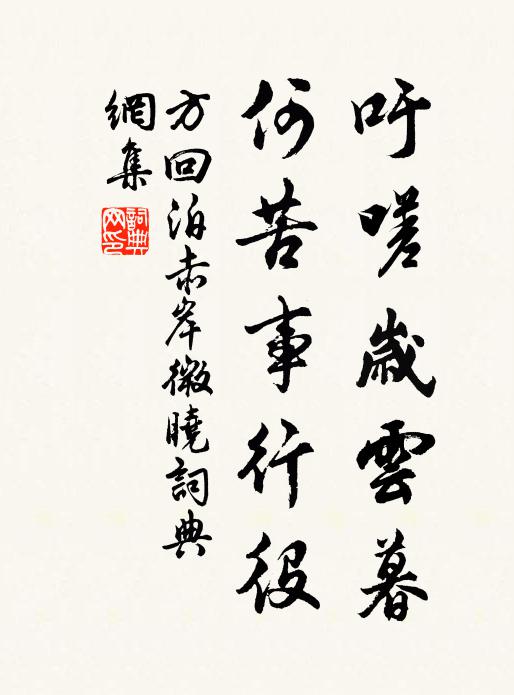 吁嗟歲雲暮
何苦事行役
方回泊赤岸微曉詞典
網集
詞典網印